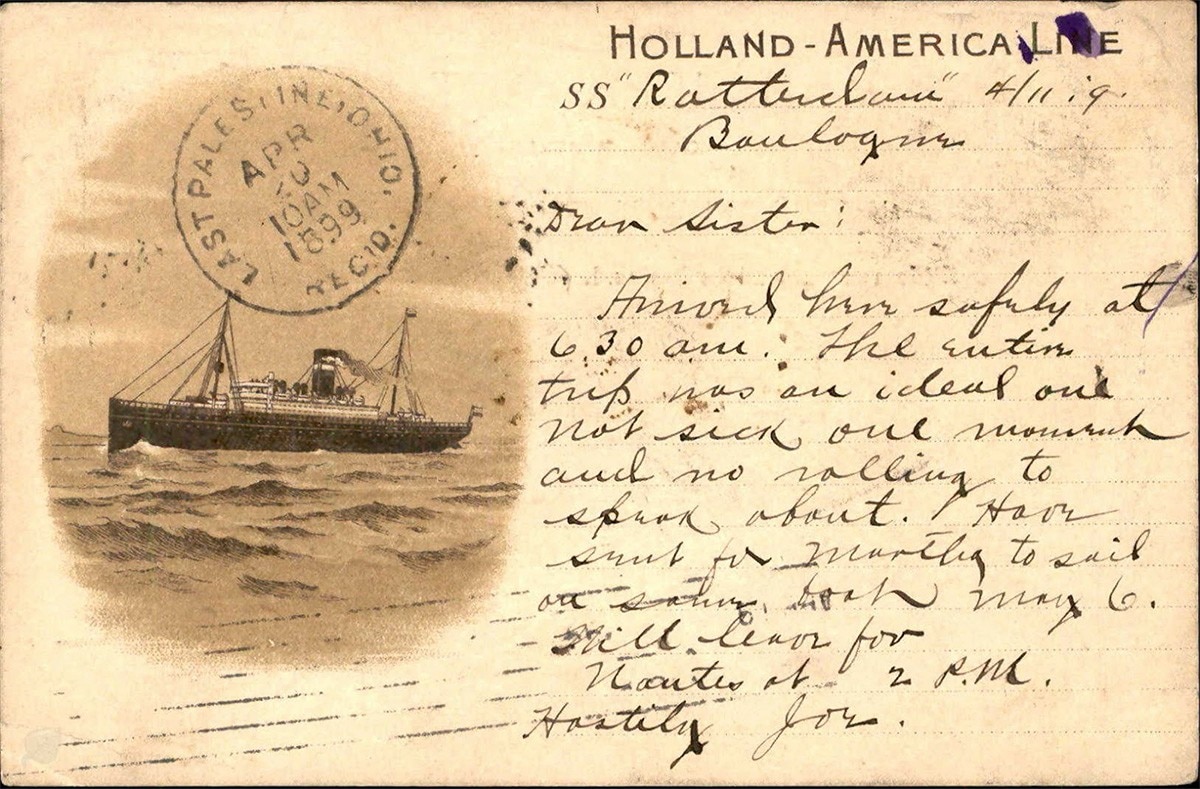 HOLLAND-AMERICA LINE
SS "Rotterdam" 4/11.9.
Boulogne
EAST PALESTINE, OHIO.
APR
10AM
1899
REC'D.
Dear Sister:
Arrived here safely at
6.30 am. The entire
trip was an ideal one
Not sick one moment
and no rolling to
speak about. Have
sent for Martha to sail
on same boat May 6.
Will leave for
Nantes at 2 P.M.
Hastily Joe.